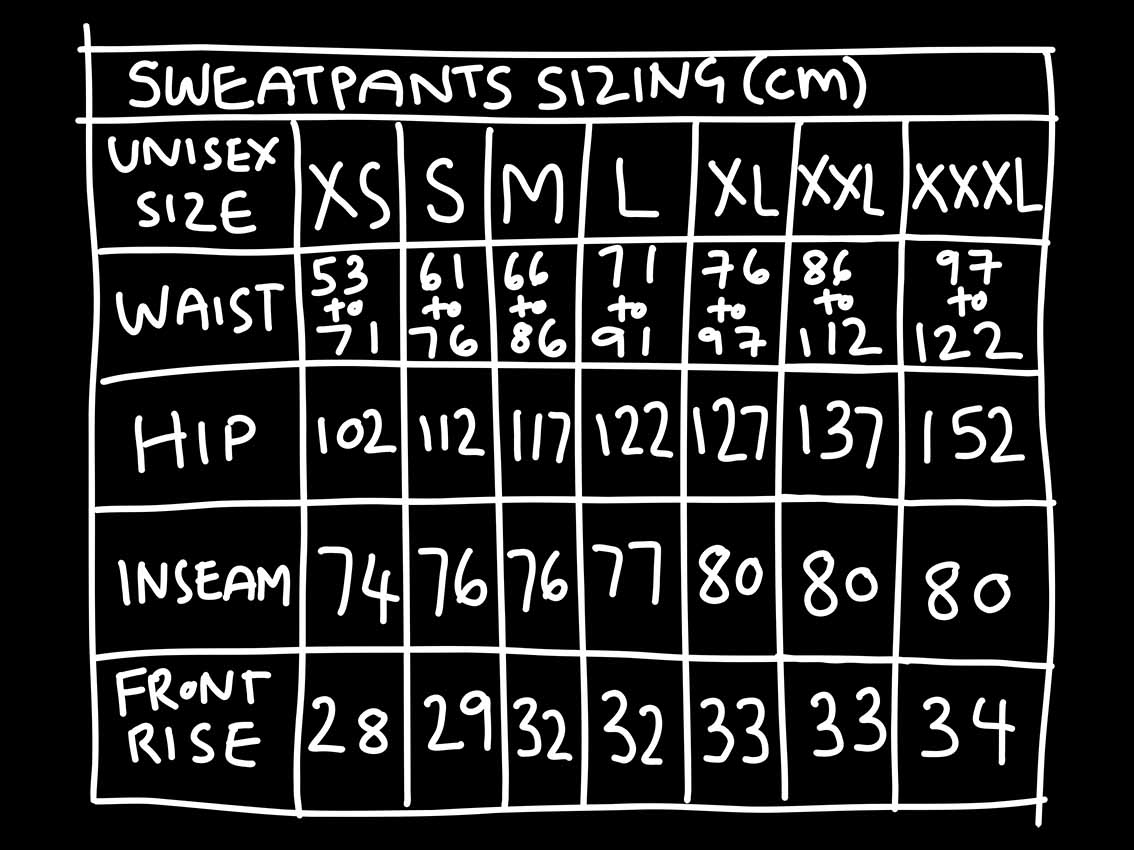 SWEATPANTS SIZING (cm)
UNISEX SIZE XS S M L XL XXL XXXL
WAIST 53 to 71 61 to 76 66 to 86 71 to 91 76 to 97 86 to 112 97 to 122
HIP 102 112 117 122 127 137 152
INSEAM 74 76 76 77 80 80 80
FRONT RISE 28 29 32 32 33 33 34